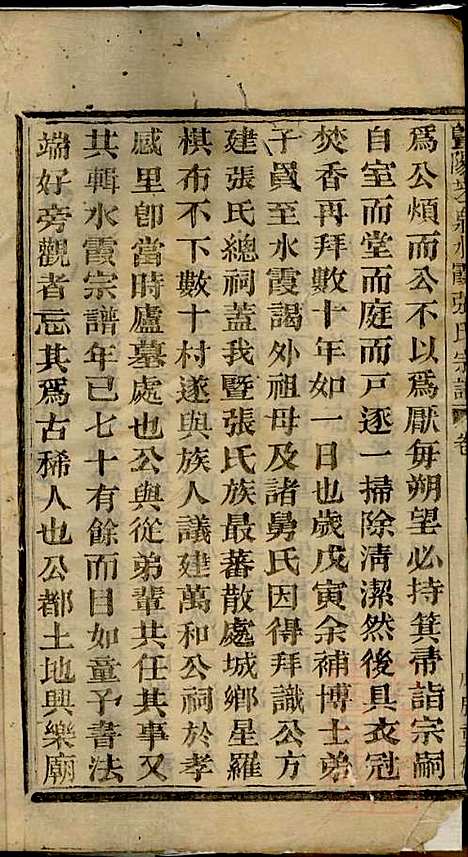 暨陽
水霞張氏宗譜
卷
爲公煩而公不以爲厭每朔望必持箕帚詣宗嗣
自室而堂而庭而戸逐一掃除清潔然後具衣冠
焚香再拜數十年如一日也歲戊寅余補博士弟
子員至水霞謁外祖母及諸舅氏因得拜識公方
建張氏總祠蓋我暨張氏族最蕃散處城鄉星羅
棋布不下數十村遂與族人議建萬和公祠於孝
感里卽當時廬墓處也公與從弟輩共任其事又
其輯水霞宗譜年已七十有餘而目如童子書法
端好旁觀者忘其爲古稀人也公都土地興樂廟